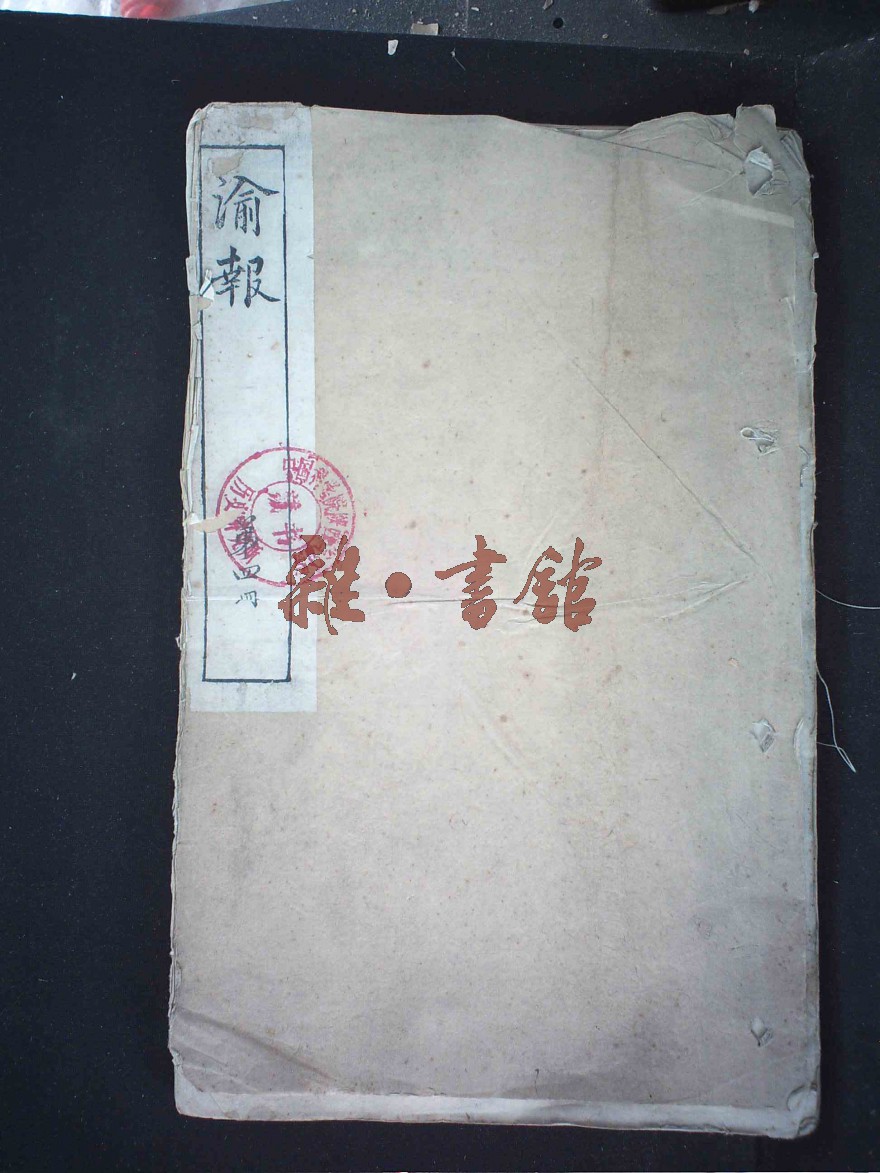 渝報
第四冊
雜·書館